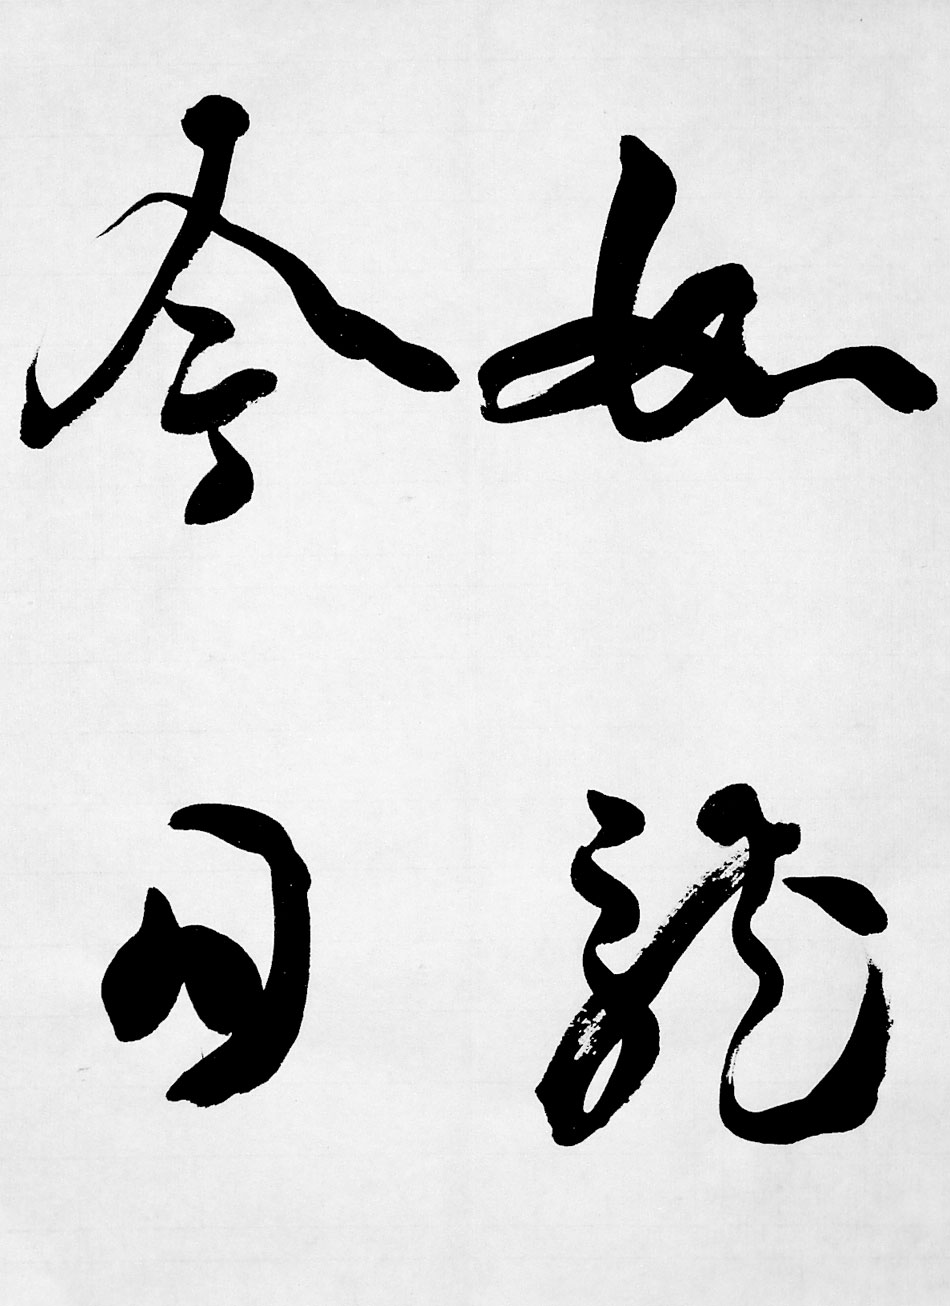 如龍
今日